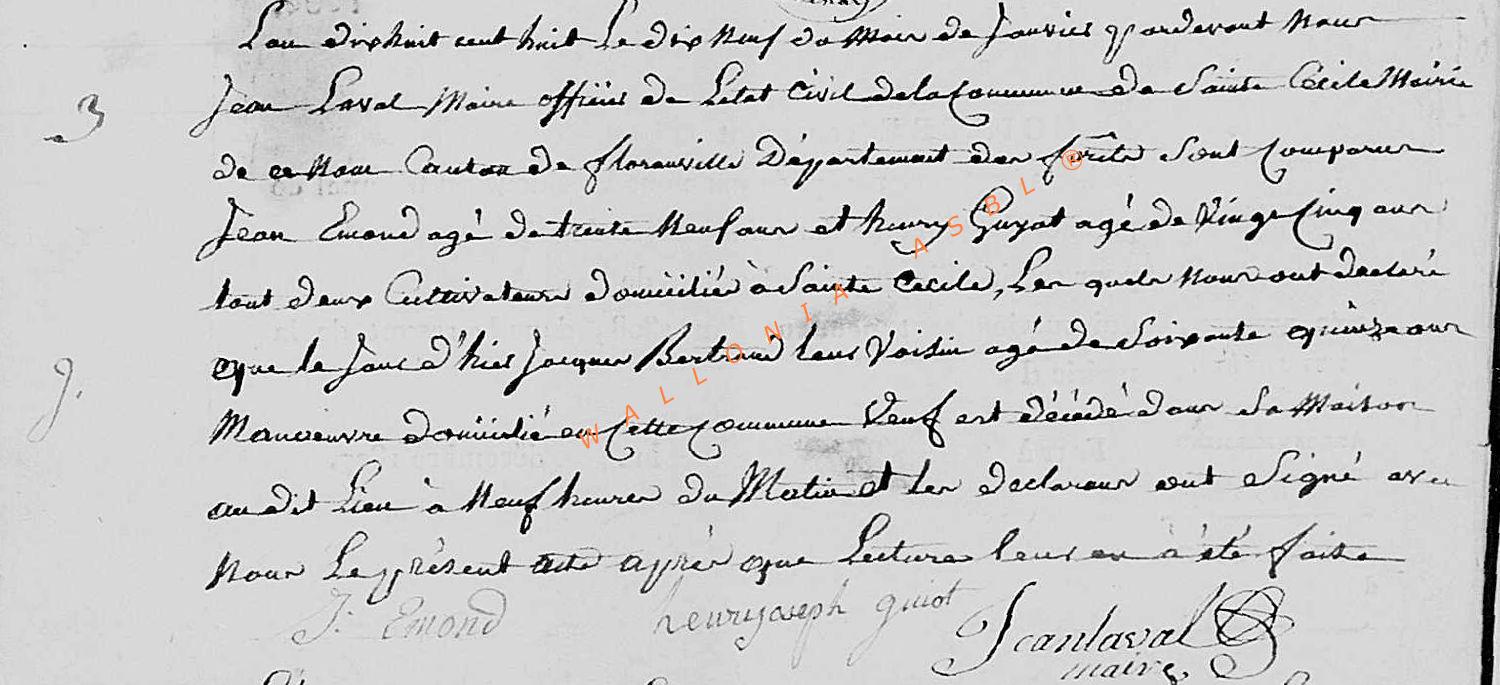 L'an dixhuit cent huit Le dix Neuf du Mois de Janvier pardevant Nous
3
Jean Laval Maire officier de L'etat Civil de la Commune de Sainte Cecile Mairie
de ce Nom Canton de florenville Département des forêts Sont Comparus
Jean Emond agé de trente Neuf ans et henry Guyot agé de Vingt Cinq ans
tout deux Cultivateurs domicilié à Sainte Cecile, Les quels Nous ont declaré
que le Jour d'hier Jacques Bertrand leur Voisin agé de Soixante quinze ans
J.
Manoeuvre domicilié en Cette Commune Veuf est décédé dans Sa Maison
au dit Lieu à Neuf heures du Matin et les declarans ont Signé avec
Nous Le présent acte après que Lecture leur en à été faite
J: Emond henry joseph guiot Jean laval
maire
WALLONIA ASBL ®